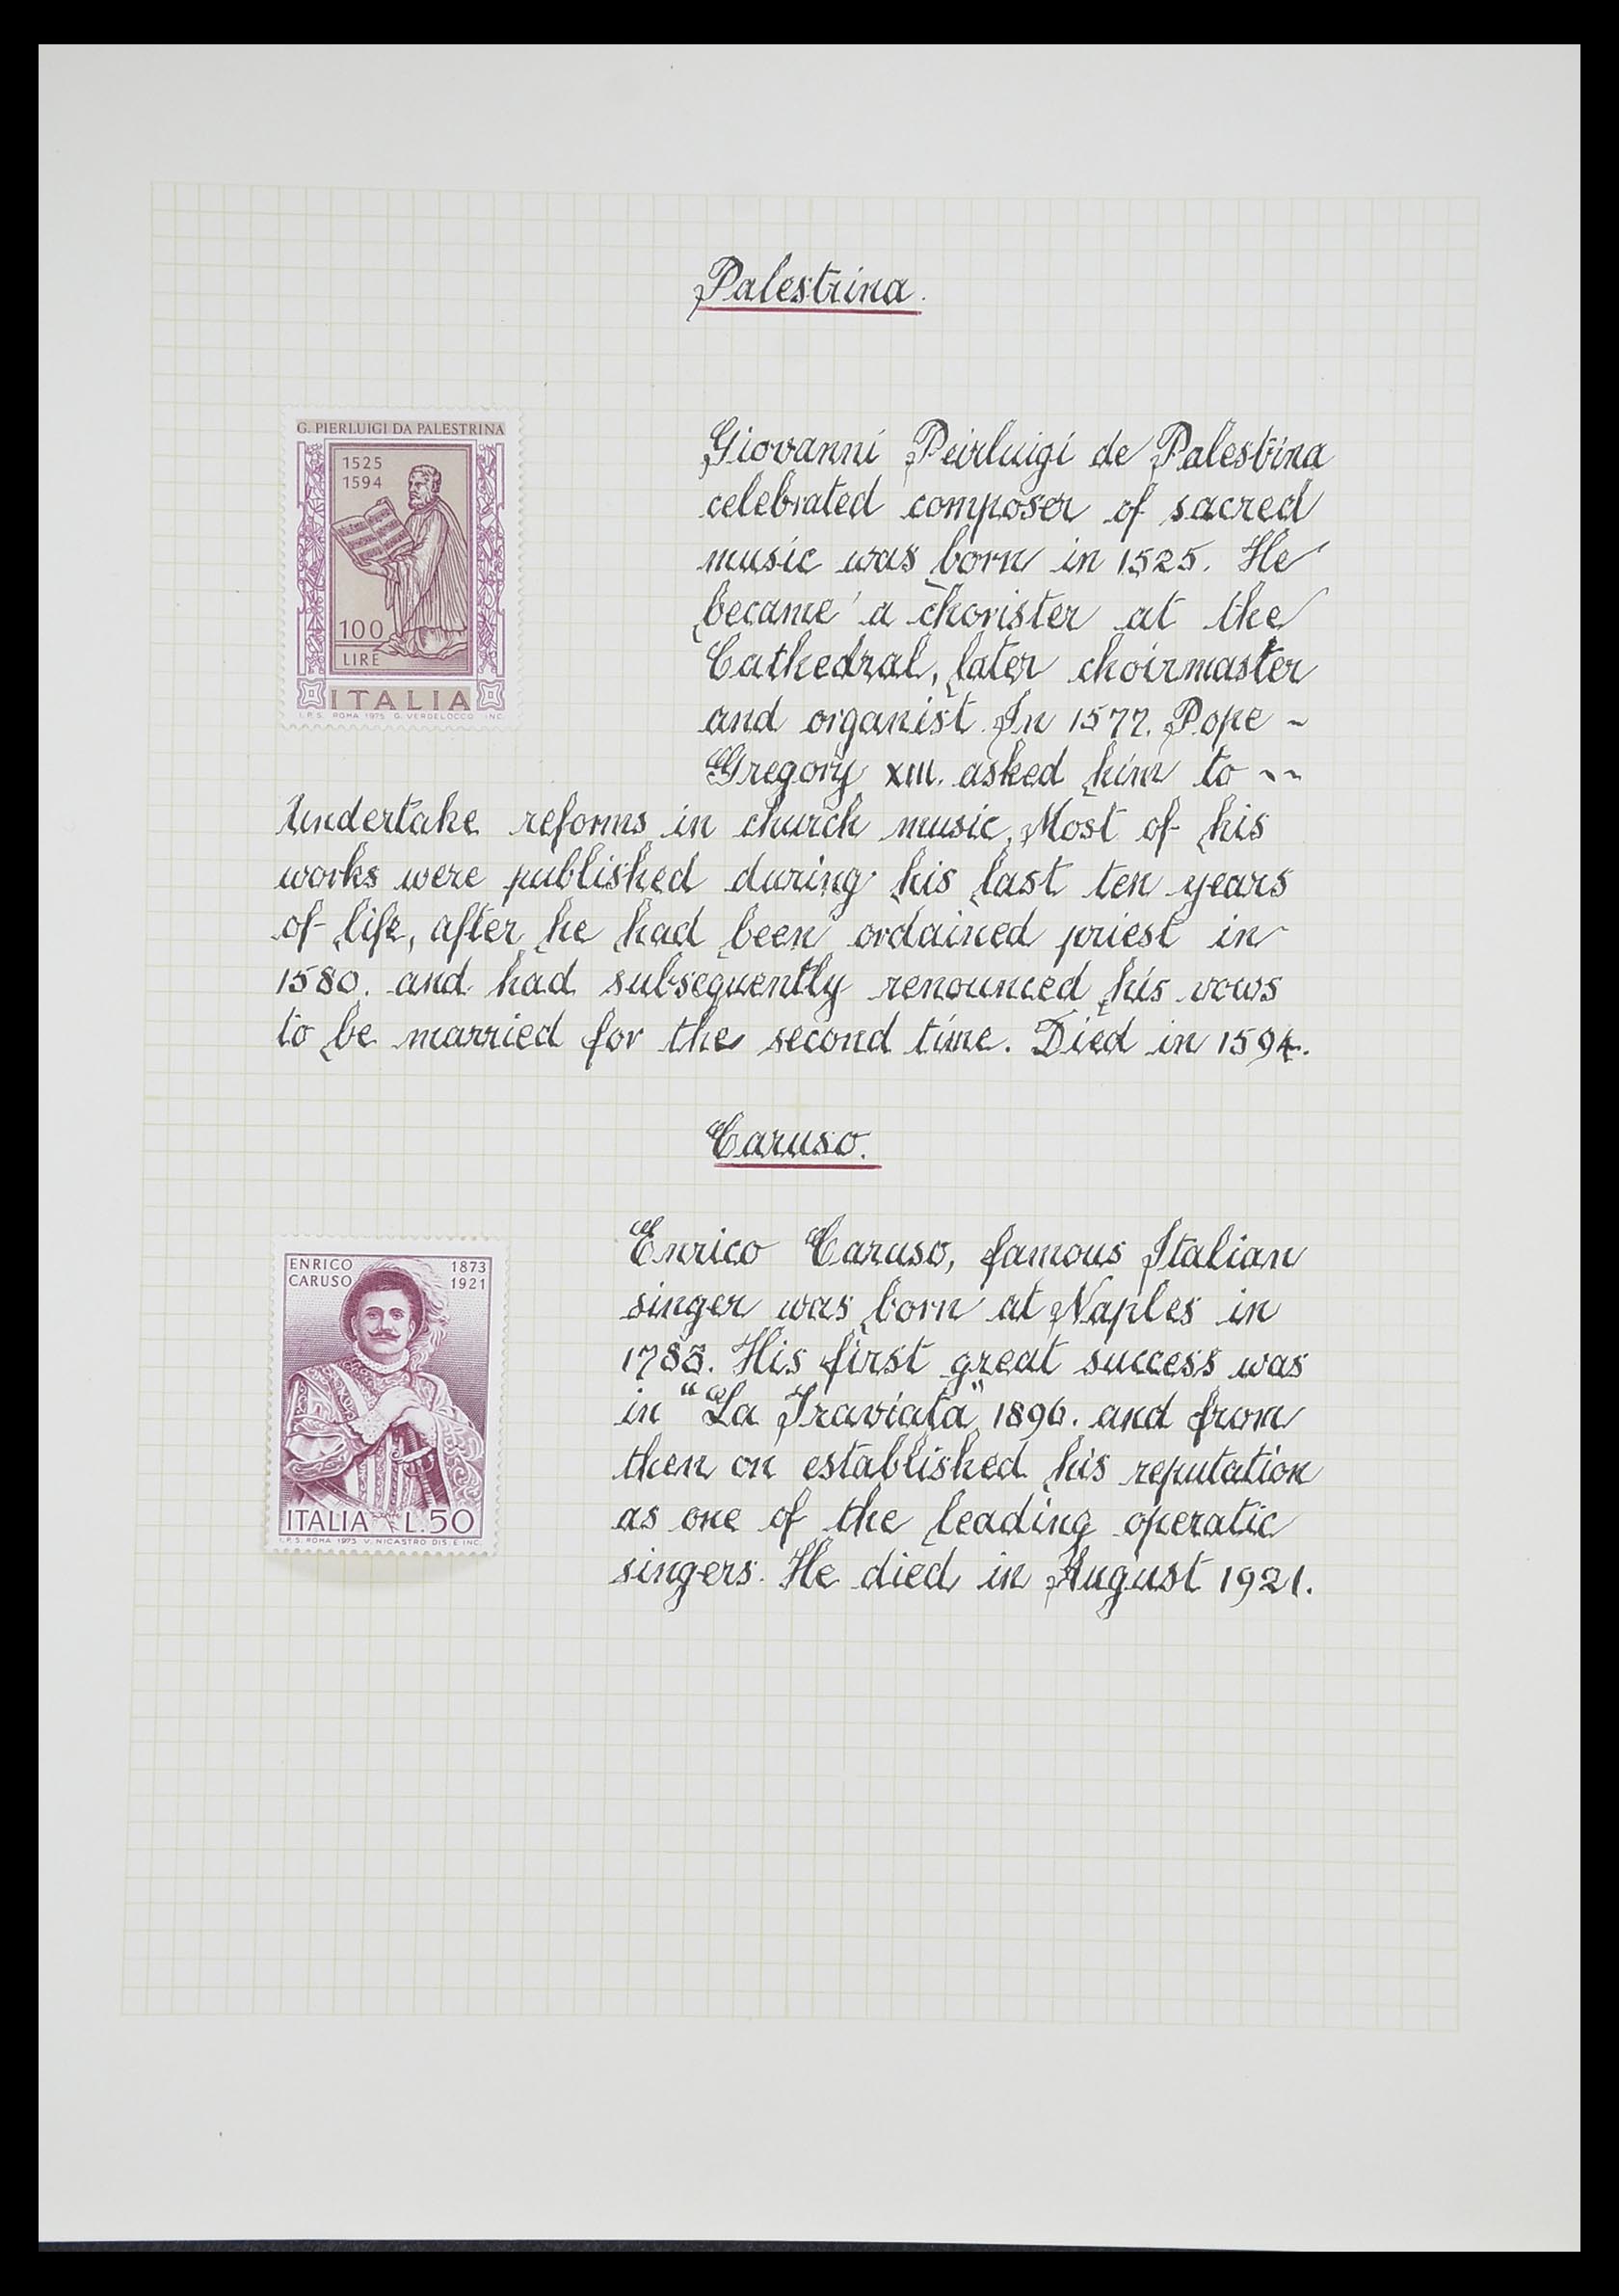 Palestrina.
G. PIERLUIGI DA PALESTRINA
1525
1594
100
LIRE
ITALIA
I.P.S. ROMA 1975 G. VERDELOCCO INC.
Giovanni Peirluigi de Palestrina
celebrated composer of sacred
music was born in 1525. He
became a chorister at the
Cathedral, later choirmaster
and organist. In 1577. Pope ~
Gregory XIII. asked him to ~~
Undertake reforms in church music. Most of his
works were published during his last ten years
of life, after he had been ordained priest in
1580. and had subsequently renounced his vows
to be married for the second time. Died in 1594.
Caruso.
ENRICO
CARUSO
1873
1921
ITALIA L.50
I.P.S. ROMA 1973 V. NICASTRO DIS. E INC.
Enrico Caruso, famous Italian
singer was born at Naples in
1783. His first great success was
in "La Traviata" 1896. and from
then on established his reputation
as one of the leading operatic
singers. He died in August 1921.